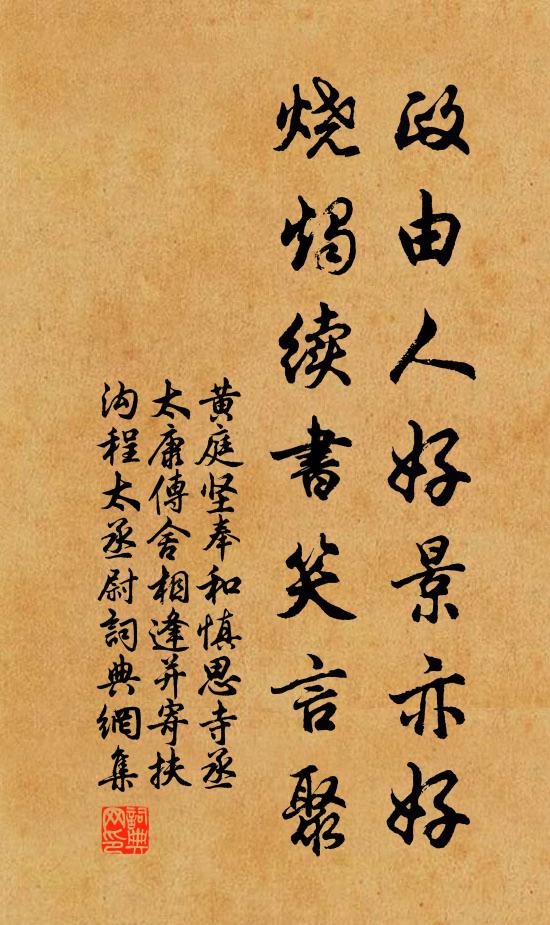 政由人好景亦好
烧烛续书笑言聚
黄庭坚奉和慎思寺丞
太康傳舍相逢并寄扶
沟程太丞尉詞典網集
詞典
网印